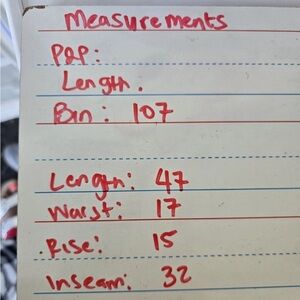 Measurements
P2P:
Length.
Bin: 107
Length: 47
Waist: 17
Rise: 15
Inseam: 32